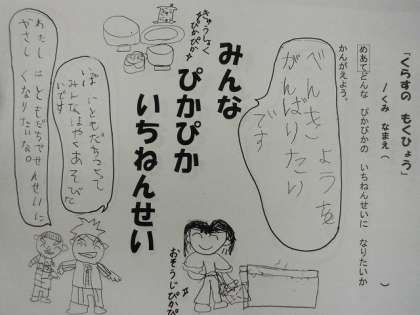 「くらすの もくひょう」
くみ なまえ（ ）
めあて どんな ぴかぴかの いちねんせいに なりたいか
かんがえよう。
べんきょうを
がんばりたい
です
みんな
ぴかぴか
いちねんせい
きゅうしょく
ぴかぴか
おそうじぴかぴ
ともだち
みんなはやくあそびた
いです
はともだちやせんせいに
やさしくなりたいな。